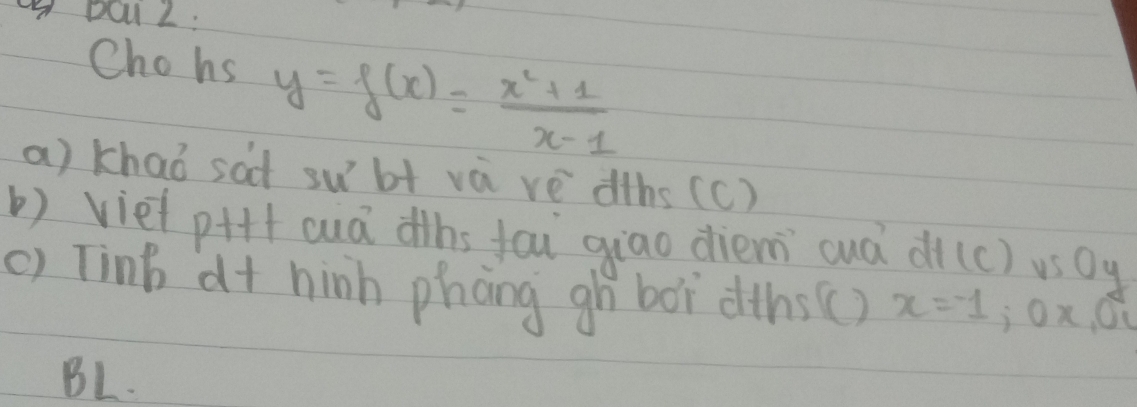 bài 2:
Cho hs y = f(x) = \frac{x²+1}{x-1}
a) Khảo sát sự bt và vẽ đths (C)
b) Viết pttt của đths tại giao điểm của đt (C) vs Oy
c) Tính dt hình phẳng gh bởi đths (C) x = -1; Ox, Oy
BL.